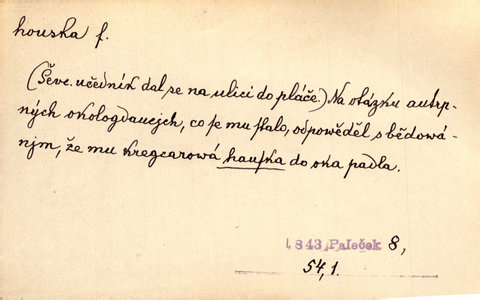 houska f.
(Ševc. učedník dal se na ulici do pláče.) Na otázku autrp-
ných okologdaucjch, co se mu stalo, odpověděl s bědowá-
njm, že mu kregcarowá hauska do oka padla.
1843 Paleček 8,
54,1.